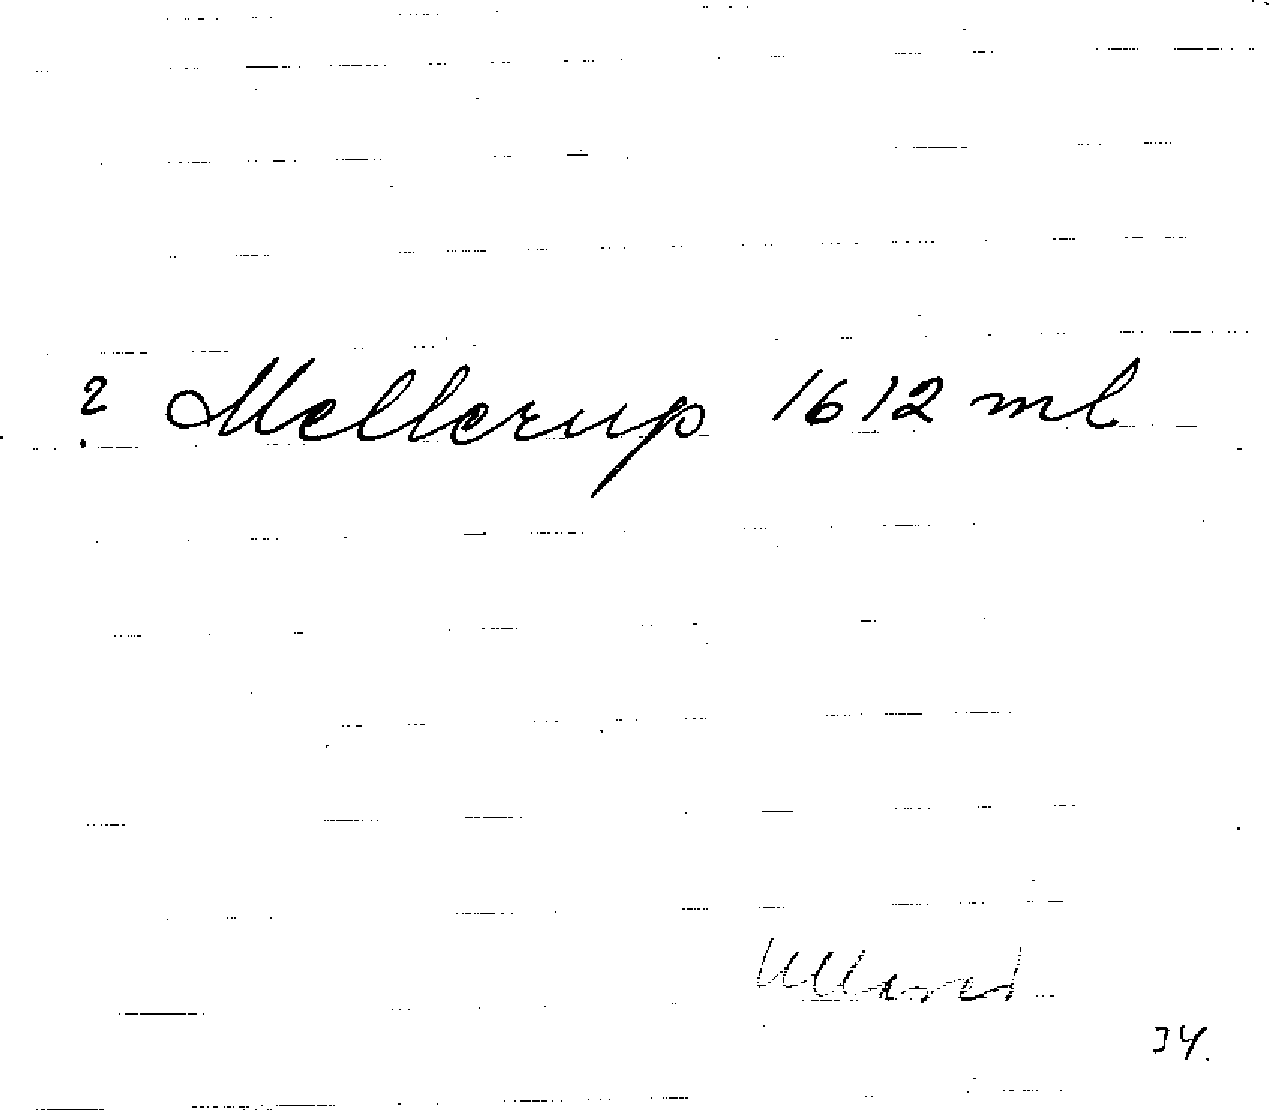 ? Mellerup 1612 ml
Ullared
34.